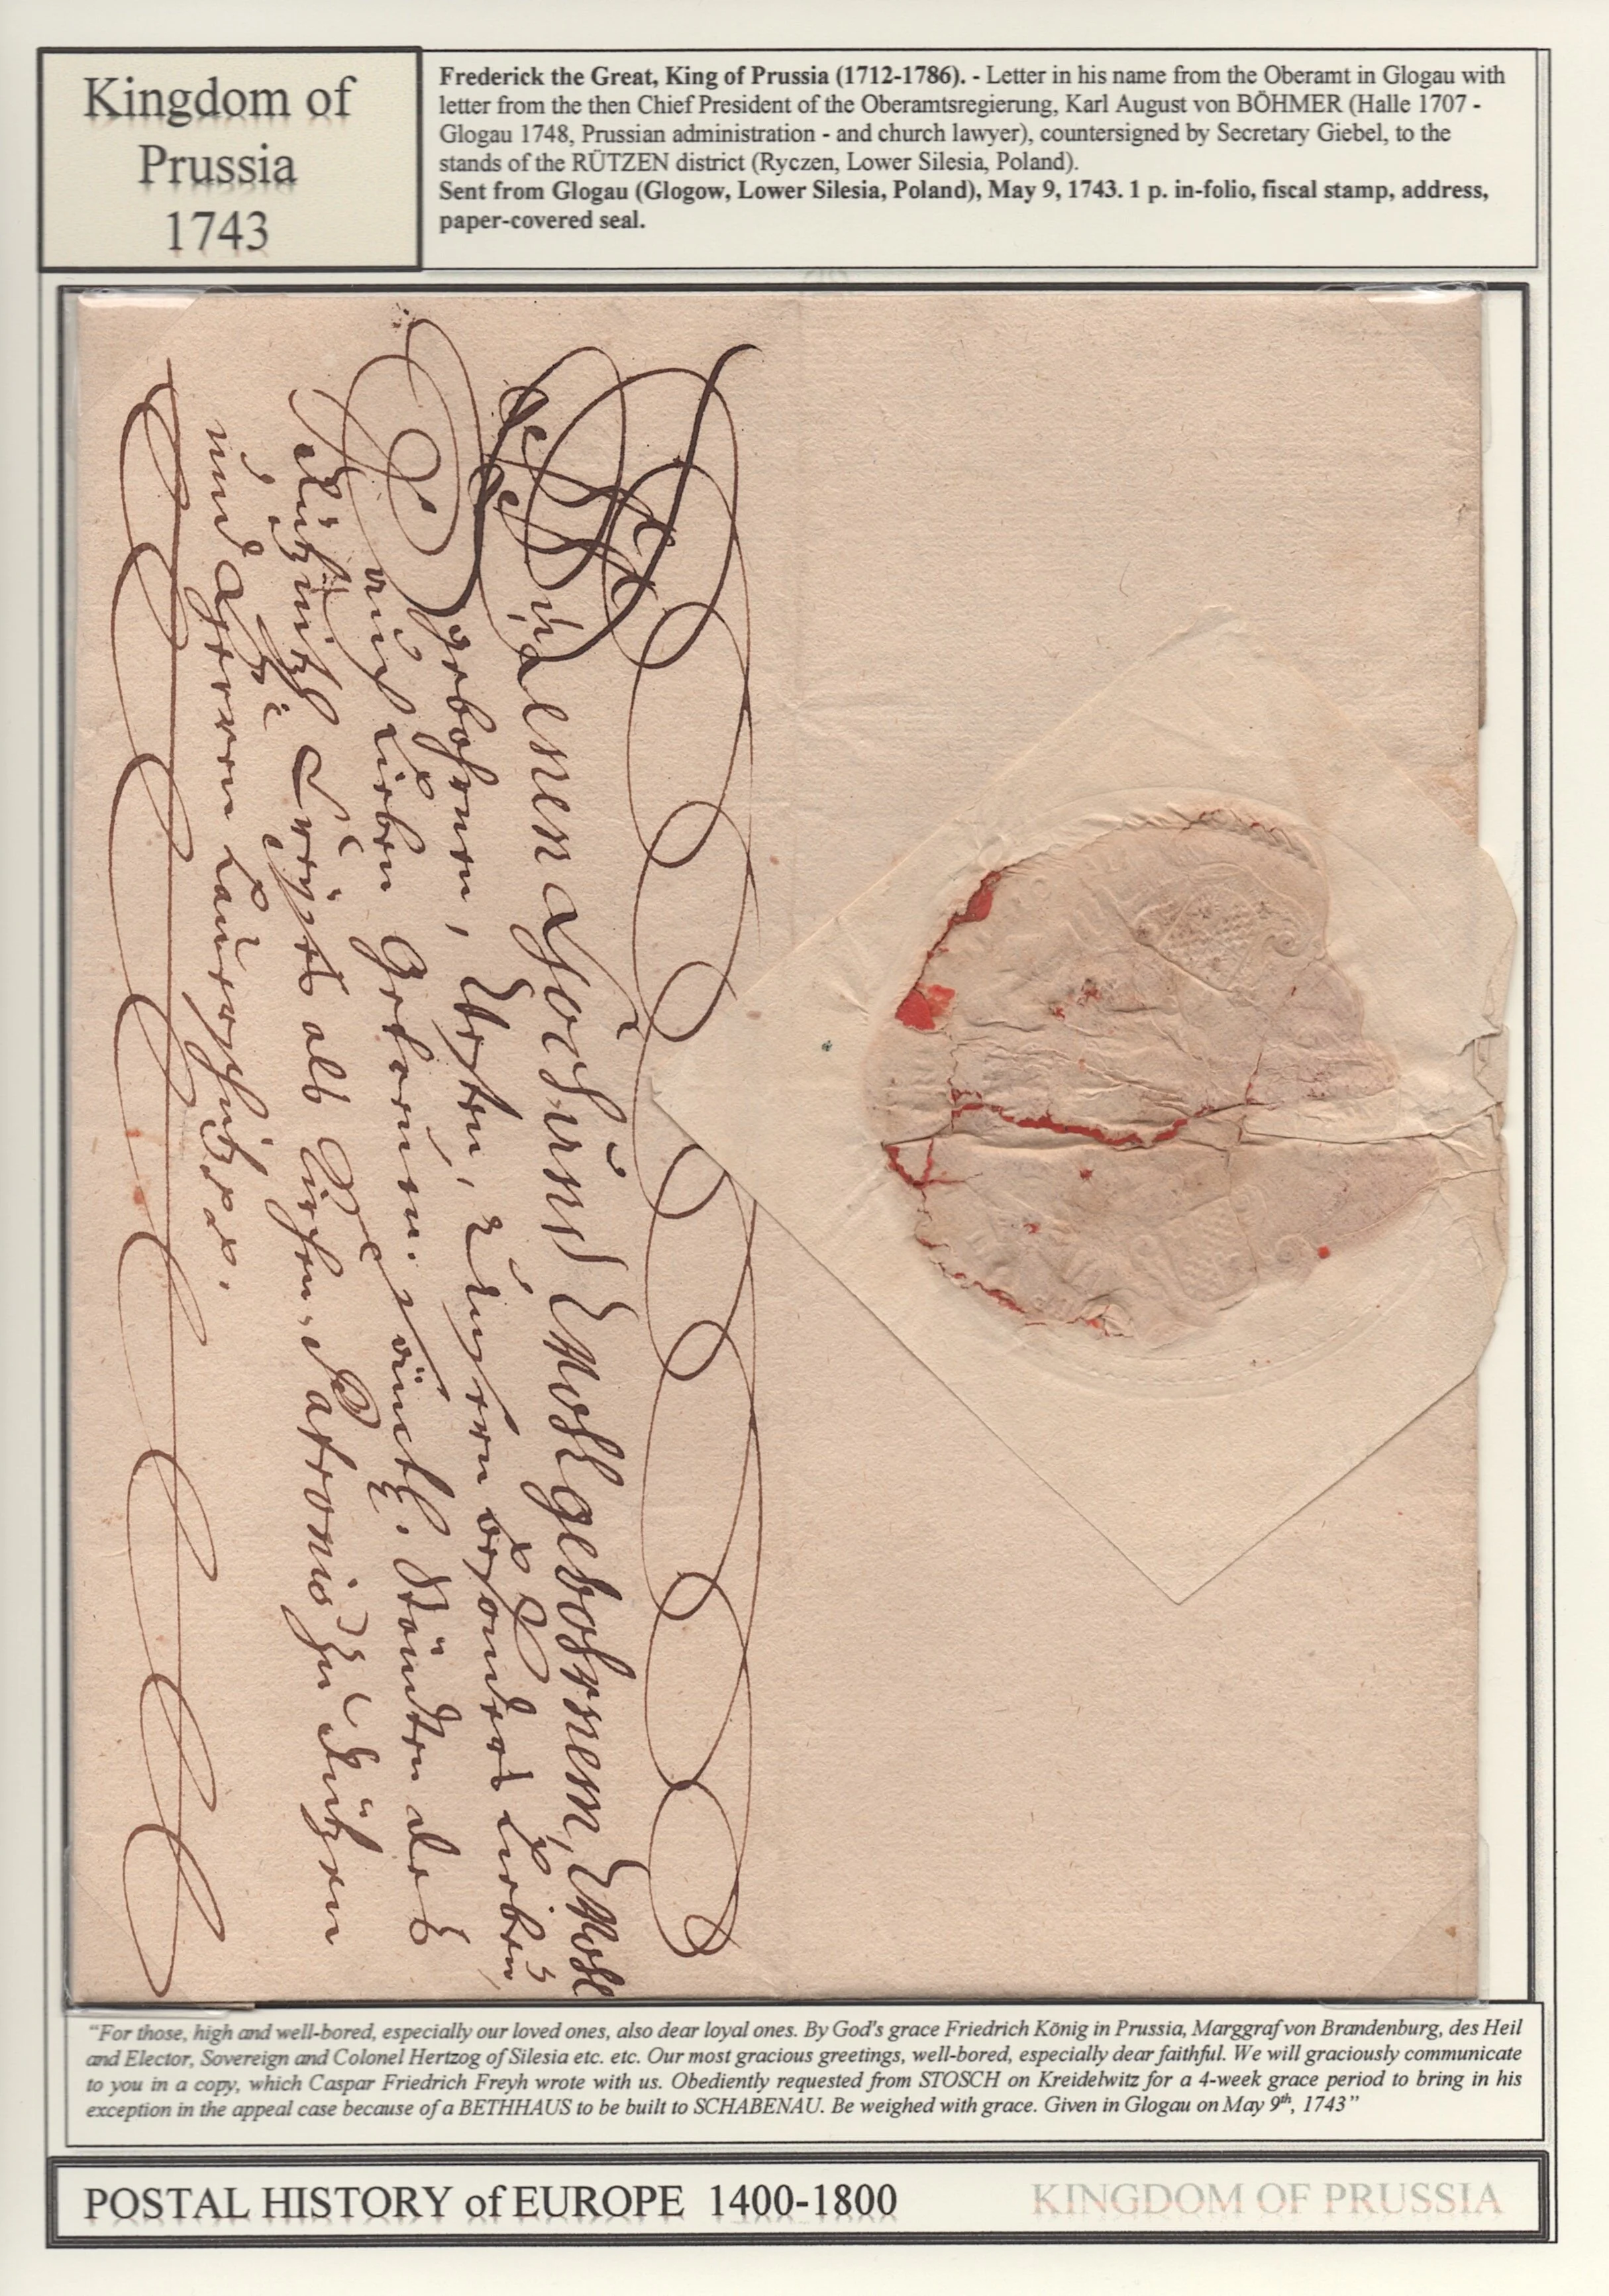 Kingdom of
Prussia
1743
Frederick the Great, King of Prussia (1712-1786). - Letter in his name from the Oberamt in Glogau with
letter from the then Chief President of the Oberamtsregierung, Karl August von BÖHMER (Halle 1707 -
Glogau 1748, Prussian administration - and church lawyer), countersigned by Secretary Giebel, to the
stands of the RÜTZEN district (Ryczen, Lower Silesia, Poland).
Sent from Glogau (Glogow, Lower Silesia, Poland), May 9, 1743. 1 p. in-folio, fiscal stamp, address,
paper-covered seal.
Denen Hoch und Wohlgebohrnen, Wohl
gebohrnen, Vesten, Unsern besonders Lieben,
auch Lieben Getreuen. sämtl. Ständen des
Creyses als Kirchen Patronis zu Rützen
und
“For those, high and well-bored, especially our loved ones, also dear loyal ones. By God's grace Friedrich König in Prussia, Marggraf von Brandenburg, des Heil
and Elector, Sovereign and Colonel Hertzog of Silesia etc. etc. Our most gracious greetings, well-bored, especially dear faithful. We will graciously communicate
to you in a copy, which Caspar Friedrich Freyh wrote with us. Obediently requested from STOSCH on Kreidelwitz for a 4-week grace period to bring in his
exception in the appeal case because of a BETHHAUS to be built to SCHABENAU. Be weighed with grace. Given in Glogau on May 9th, 1743”
POSTAL HISTORY of EUROPE 1400-1800
KINGDOM OF PRUSSIA